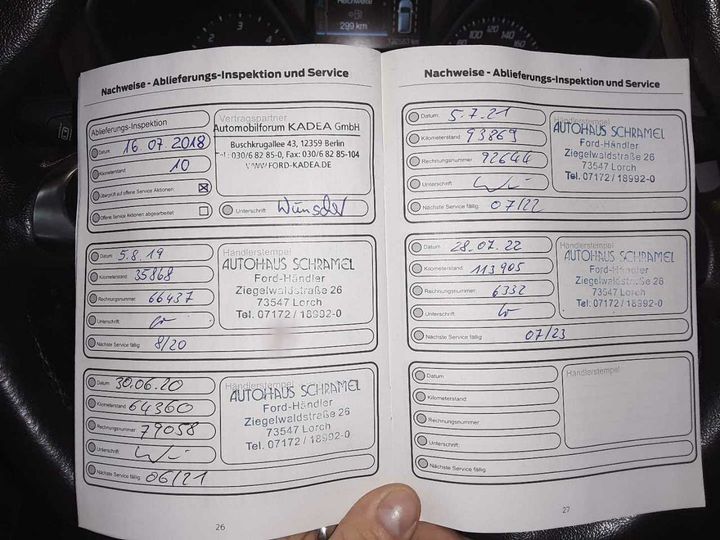 299 km
Nachweise - Ablieferungs-Inspektion und Service
Ablieferungs-Inspektion
Datum: 16.07.2018
Kilometerstand: 10
Überprüft auf offene Service Aktionen:
Offene Service Aktionen abgearbeitet
Vertragspartner
Automobilforum KADEA GmbH
Buschkrugallee 43, 12359 Berlin
Tel.: 030/6 82 85-0, Fax: 030/6 82 85-104
WWW.FORD-KADEA.DE
Unterschrift: Wünsche
Datum: 5.8.19
Kilometerstand: 35868
Rechnungsnummer: 66437
Unterschrift:
Nächste Service fällig: 8/20
Händlerstempel
AUTOHAUS SCHRAMEL
Ford-Händler
Ziegelwaldstraße 26
73547 Lorch
Tel. 07172 / 18992-0
Datum: 30.06.20
Kilometerstand: 64360
Rechnungsnummer: 79058
Unterschrift:
Nächste Service fällig: 06/21
Händlerstempel
AUTOHAUS SCHRAMEL
Ford-Händler
Ziegelwaldstraße 26
73547 Lorch
Tel. 07172 / 18992-0
26
Nachweise - Ablieferungs-Inspektion und Service
Datum: 5.7.21
Kilometerstand: 93869
Rechnungsnummer: 92644
Unterschrift:
Nächste Service fällig: 07/22
AUTOHAUS SCHRAMEL
Ford-Händler
Ziegelwaldstraße 26
73547 Lorch
Tel. 07172 / 18992-0
Datum: 28.07.22
Kilometerstand: 113905
Rechnungsnummer: 6332
Unterschrift:
Nächste Service fällig: 07/23
Händlerstempel
AUTOHAUS SCHRAMEL
Ford-Händler
Ziegelwaldstraße 26
73547 Lorch
Tel. 07172 / 18992-0
Datum:
Kilometerstand:
Rechnungsnummer:
Unterschrift:
Nächste Service fällig:
Händlerstempel
27